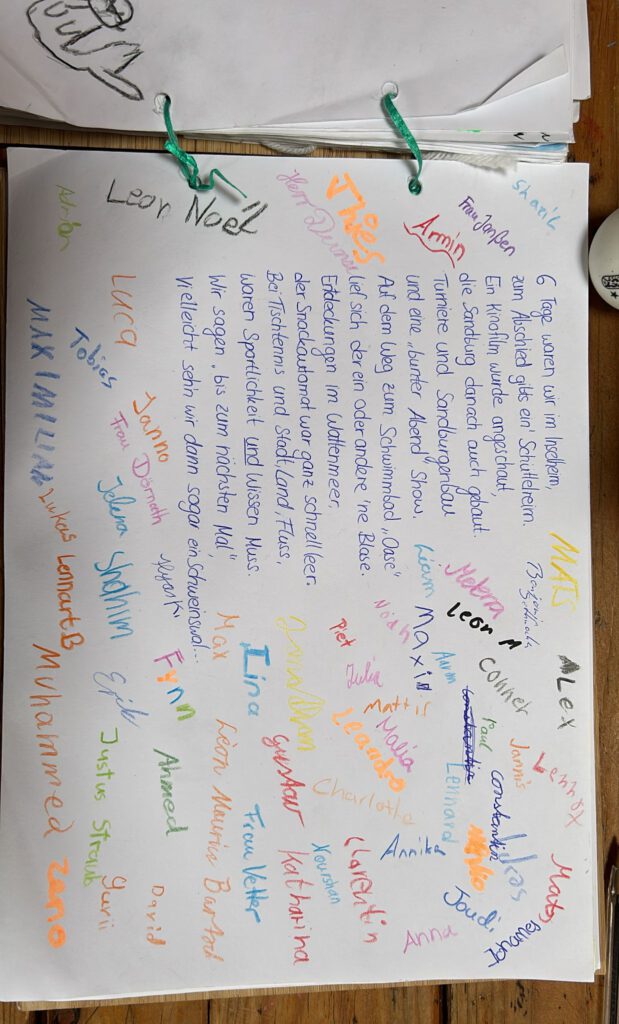 6 Tage waren wir im Inselheim,
zum Abschied gibts ein' Schüttelreim.
Ein Kinofilm wurde angeschaut,
die Sandburg danach auch gebaut.
Turniere und Sandburgenbau
und eine „bunter Abend" Show.
Auf dem Weg zum Schwimmbad „Oase"
lief sich der ein oder andere 'ne Blase.
Entdeckungen im Wattenmeer,
der Snackautomat war ganz schnell leer.
Bei Tischtennis und Stadt, Land, Fluss,
waren Sportlichkeit und Wissen Muss.
Wir sagen „bis zum nächsten Mal"
Vielleicht sehn wir dann sogar ein Schweinswal...
Sharik
Frau Janßen
Armin
Thies
Herr
Leon Noël
Adrian
Luca
Tobias
MAXIMILIAN
Janno
Frau Dörnath
Jelena
Shahim
Lukas
Lennart B
Muhammed
MATS
Benjamin
ALex
Melena
Leon M
Liam
Maxim
Noah
Piet
Julia
Aaron
Conner
Paul
Jannis
Lennox
Constantin
Constantin
Mattis
Malia
Leandro
Lennard
Charlotte
Max
Lina
Fynn
Erik
Gustav
Ahmed
Justus Straub
Lion Mauric
Frau Vetter
Katharina
Nourshan
Clarentin
Annika
Lukas
Mats
Joudi
Anna
David
Yurii
Zeno